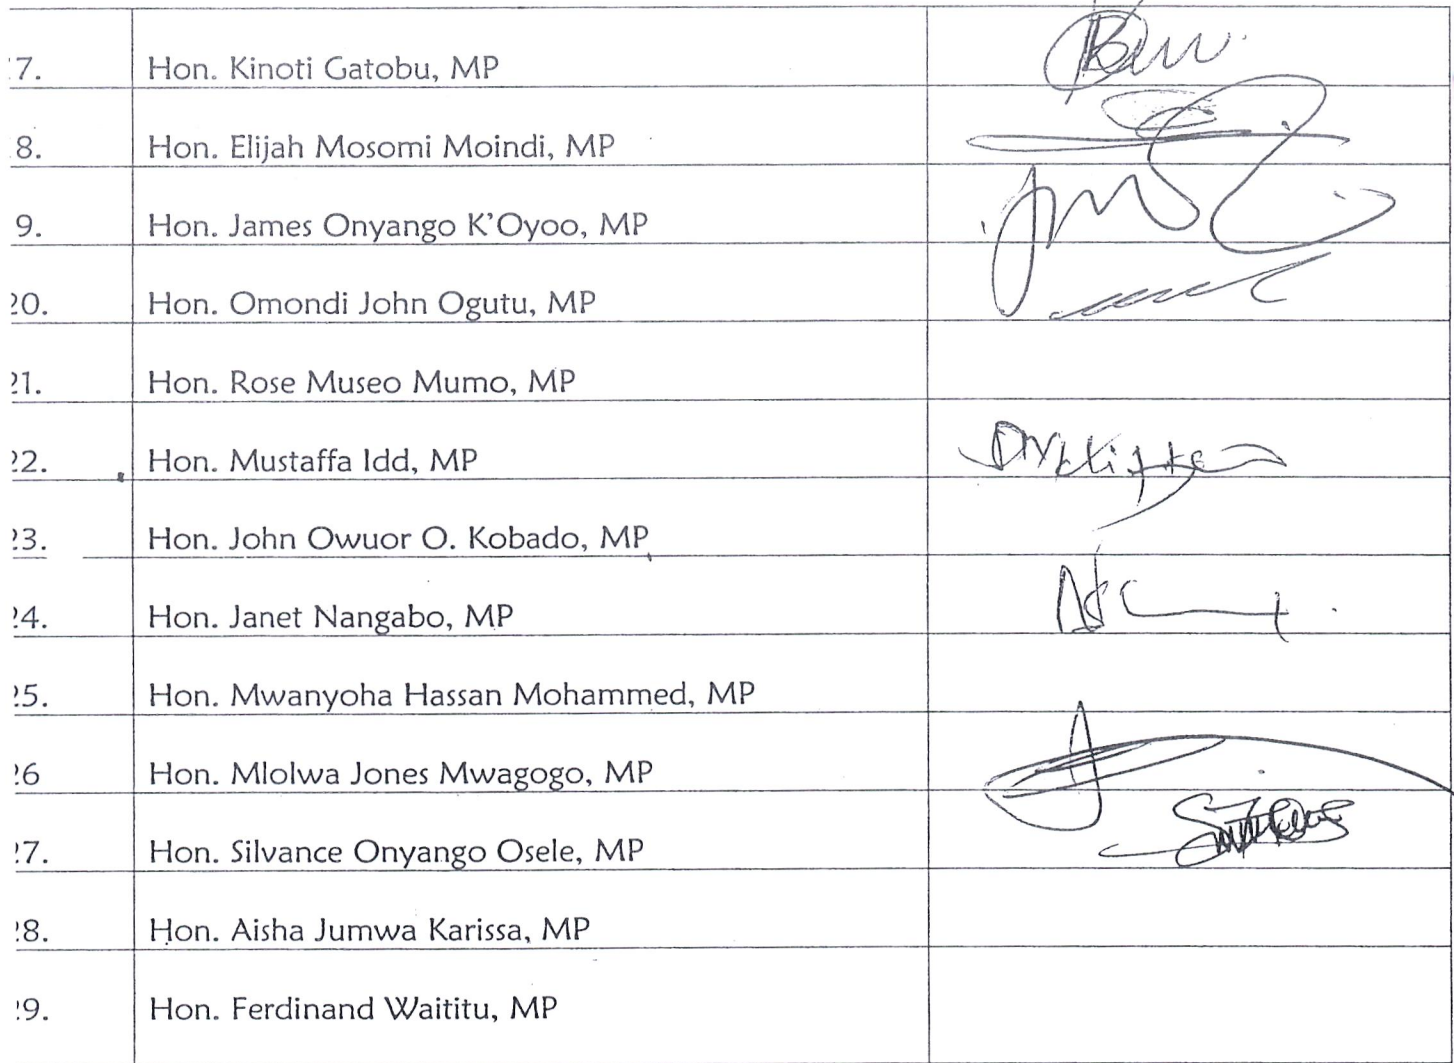 7. Hon. Kinoti Gatobu, MP
8. Hon. Elijah Mosomi Moindi, MP
9. Hon. James Onyango K'Oyoo, MP
20. Hon. Omondi John Ogutu, MP
21. Hon. Rose Museo Mumo, MP
22. Hon. Mustaffa Idd, MP
23. Hon. John Owuor O. Kobado, MP
24. Hon. Janet Nangabo, MP
25. Hon. Mwanyoha Hassan Mohammed, MP
26 Hon. Mlolwa Jones Mwagogo, MP
27. Hon. Silvance Onyango Osele, MP
28. Hon. Aisha Jumwa Karissa, MP
29. Hon. Ferdinand Waititu, MP